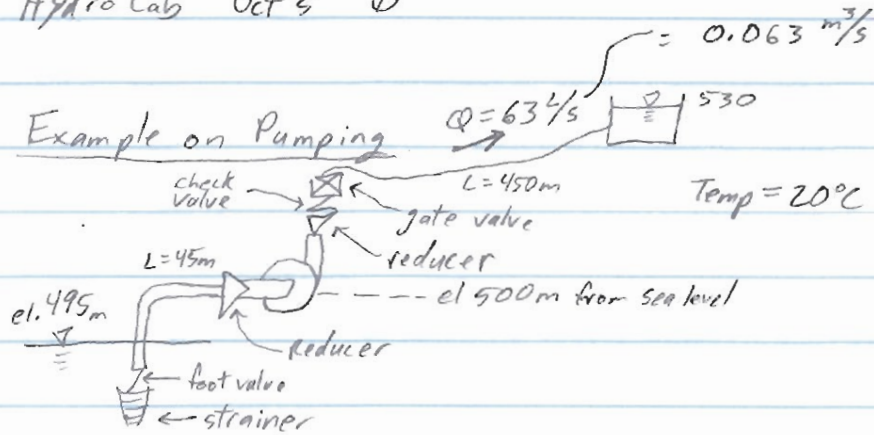 Hydro Lab Oct 5
= 0.063 m³/s
Example on Pumping
Q = 63 L/s
530
check valve
L = 450m
gate valve
Temp = 20°C
reducer
L = 45m
el 500m from sea level
el. 495m
Reducer
foot valve
strainer